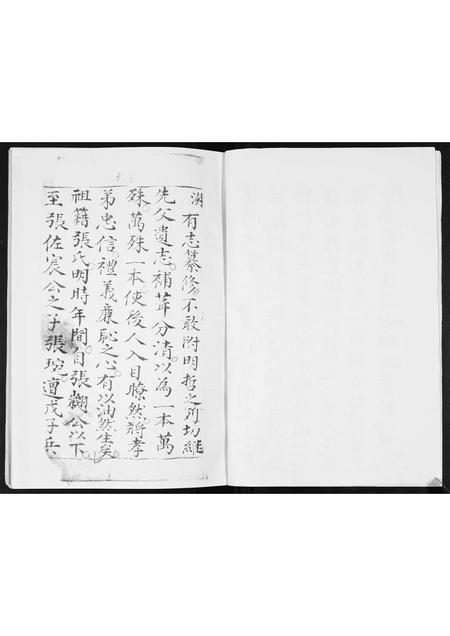 淵有志纂修不敢附明哲之列切繼
先父遺志補葺分清以為一本萬
殊萬殊一本使後人入目瞭然將孝
弟忠信禮義廉恥之心有以油然生矣
祖籍張氏明時年間自張翱公以下
至張佐宸公之子張琬遭戊子兵